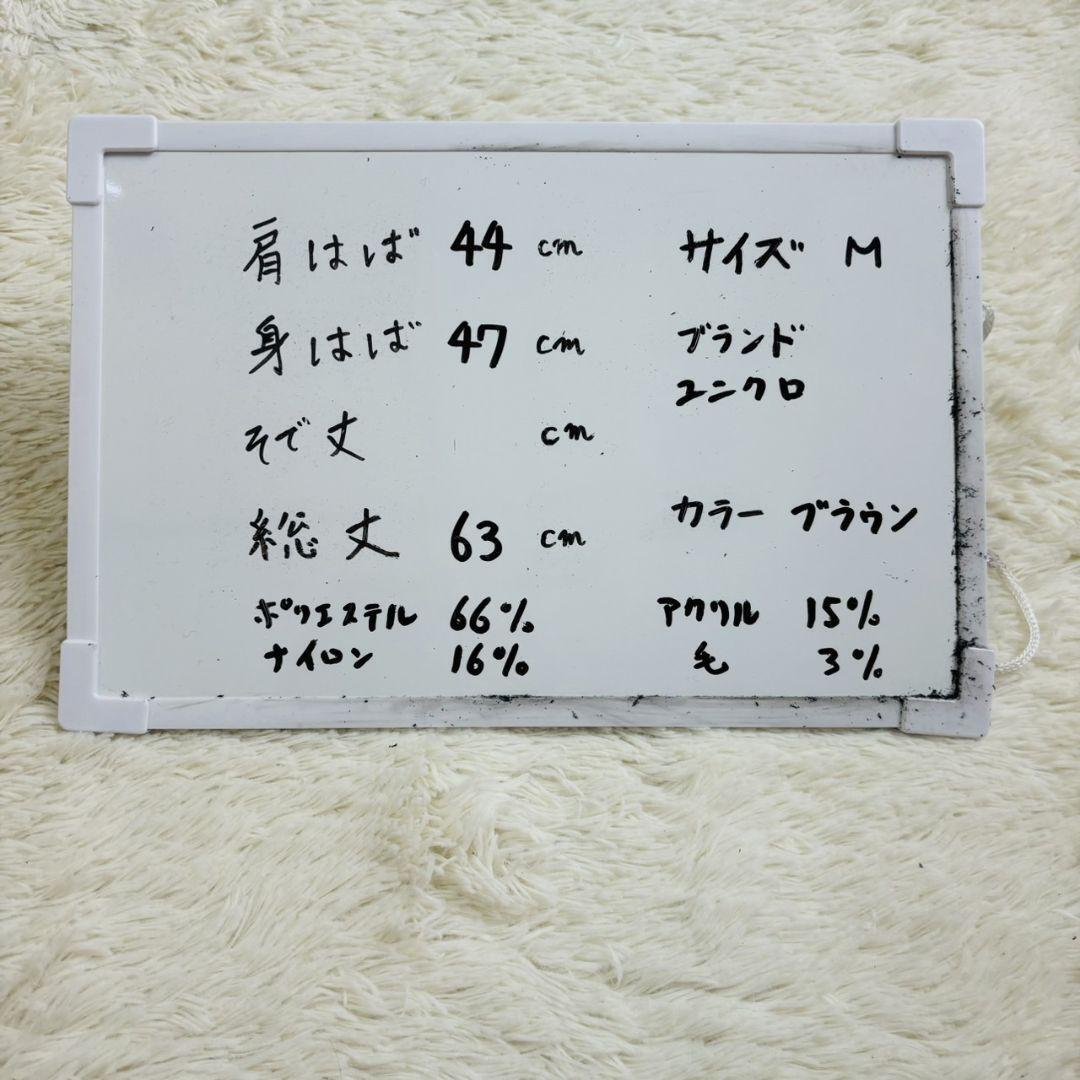 肩はば 44 cm
身はば 47 cm
そで丈 cm
総丈 63 cm
ポリエステル 66%
ナイロン 16%
サイズ M
ブランド
ユニクロ
カラー ブラウン
アクリル 15%
毛 3%